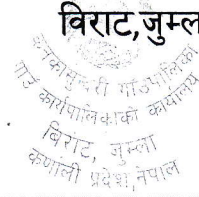 विराट, जुम्ला
कनकासुन्दरी गाउँपालिका
गाउँ कार्यपालिकाको कार्यालय
विराट, जुम्ला
कर्णाली प्रदेश, नेपाल